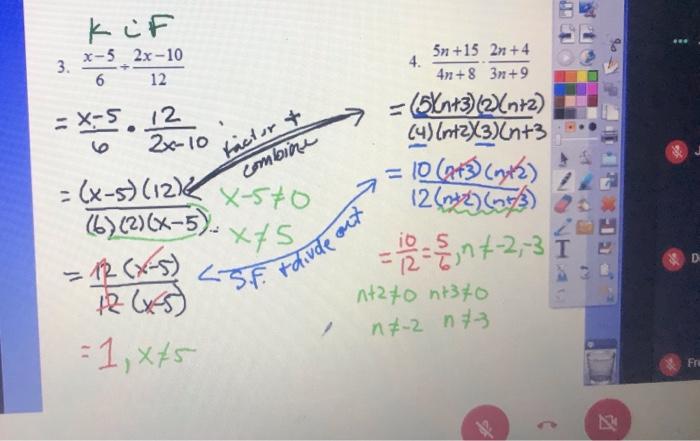 K i F
3. x-5/6 ÷ 2x-10/12
= x-5/6 • 12/2x-10
factor +
combine
= (x-5)(12)/(6)(2)(x-5)
x-5≠0
x≠5
= 12(x-5)/12(x-5)
S.F. + divide out
= 1, x≠5
4. 5n+15/4n+8 · 2n+4/3n+9
= (5)(n+3)(2)(n+2)/(4)(n+2)(3)(n+3
= 10(n+3)(n+2)/12(n+2)(n+3)
= 10/12 = 5/6, n≠-2,-3
n+2≠0 n+3≠0
n≠-2 n≠-3
T
D
Fr